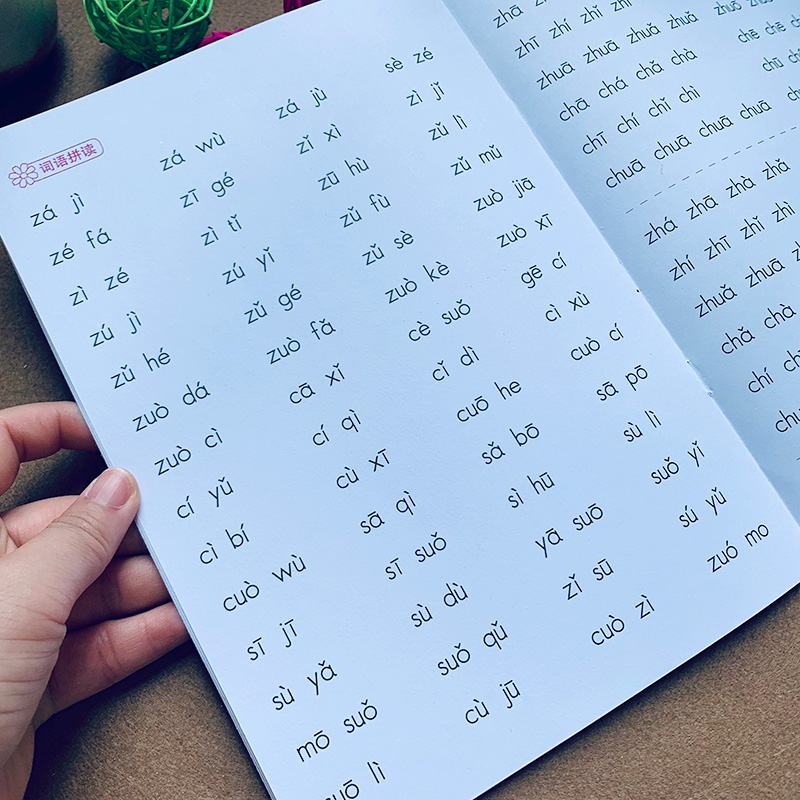 词语拼读
zá jì zá wù zá jù sè zé
zé fá zī gé zǐ xì zì jǐ
zì zé zì tǐ zū hù zǔ lì
zú jì zú yǐ zǔ fù zǔ mǔ
zǔ hé zǔ gé zǔ sè zuò jiā
zuò dá zuò fǎ zuò kè zuò xī
zuò cì cā xǐ cè suǒ gē cí
cí yǔ cí qì cǐ dì cì xù
cì bí cù xī cuō he cuò cí
cuò wù sā qì sǎ bō sā pō
sī jī sī suǒ sì hū sù lì
sù yǎ sù dù yā suō suǒ yǐ
mō suǒ suǒ qǔ zǐ sū sú yǔ
lì cù jū cuò zì zuó mo
zhā
zhī zhí zhǐ zhì
zhuā zhuá zhuǎ zhuà
chā chá chǎ chà
chī chí chǐ chì
chuā chuá chuǎ chuà
chē chě
chū
zhá zhā zhà zhǎ
zhí zhī zhǐ zhì
zhuǎ zhuā
chǎ chà
chí